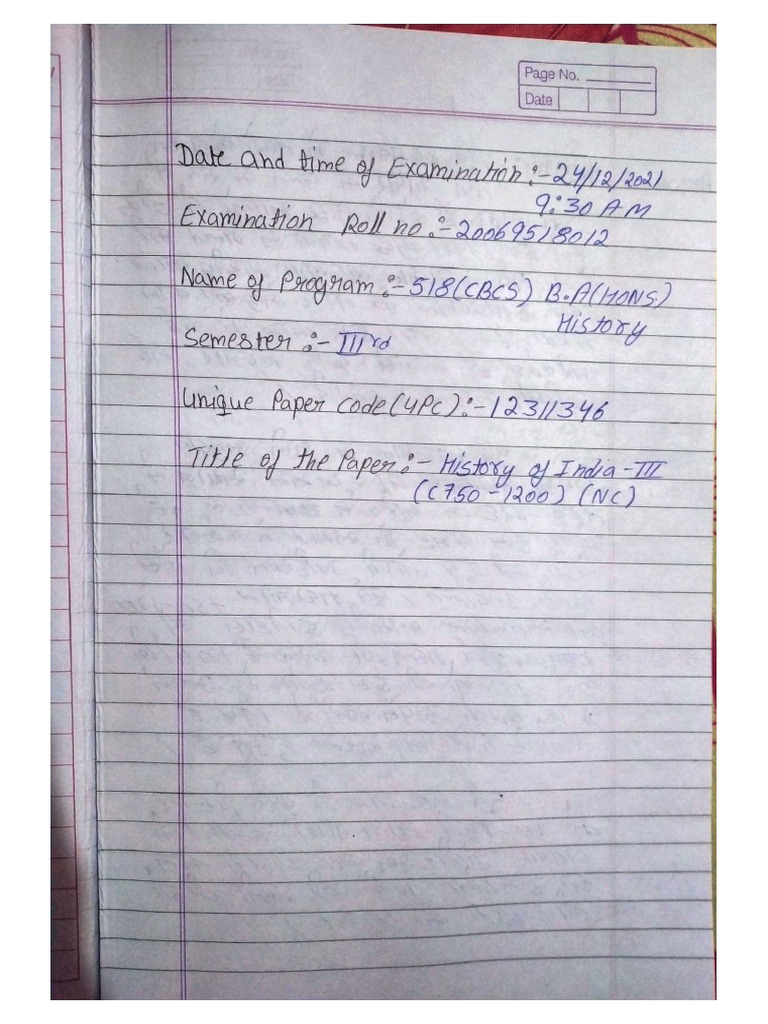 Page No.
Date
Date and time of Examination:-24/12/2021
9:30 AM
Examination Roll no.:-20069518012
Name of Program:-518(CBCS) B.A(HONS)
History
Semester:-IIIrd
Unique Paper code(UPC):-12311346
Title of the Paper:-History of India-III
(C750-1200) (NC)